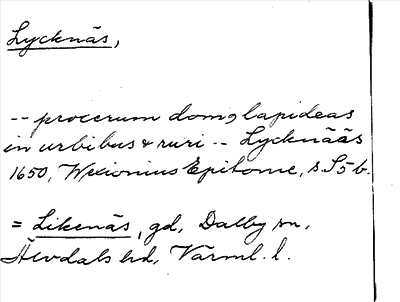 Lycknäs,
-- procerum domos lapideas
in urbibus & ruri -- Lycknääs
1650, Wexionius Epitome, s. S5b.
= Likenäs, gd, Dalby sn,
Älvdals hd, Värml. l.